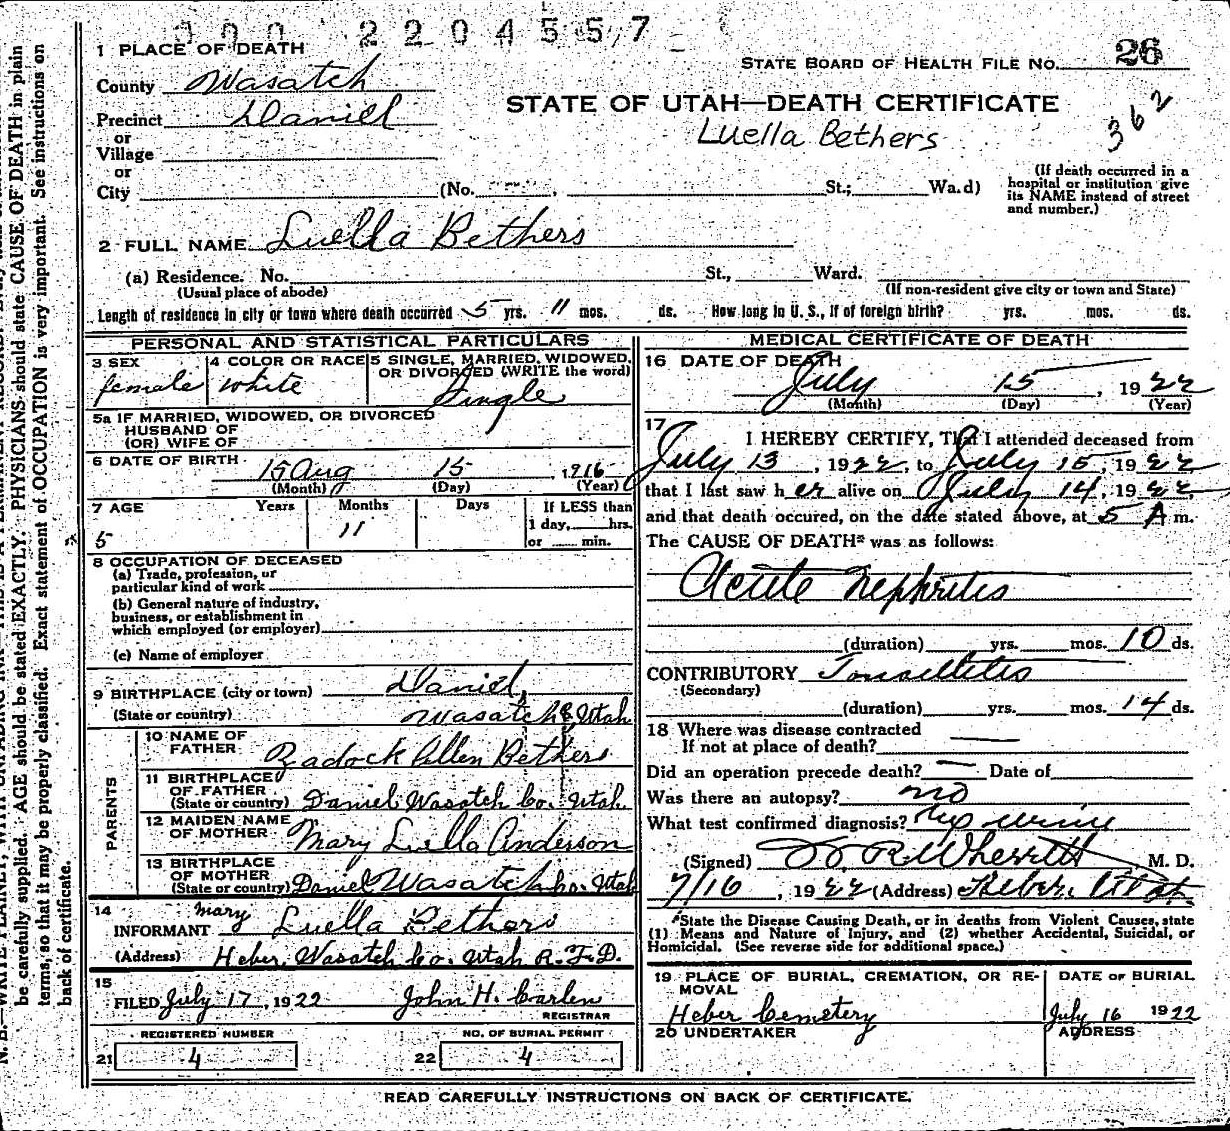 000 2204557
1 PLACE OF DEATH
STATE BOARD OF HEALTH FILE NO. 26
County Wasatch
STATE OF UTAH—DEATH CERTIFICATE
362
Precinct Daniel
Luella Bethers
or
Village
or
City (No. St.; Wa.d)
(If death occurred in a
hospital or institution give
its NAME instead of street
and number.)
2 FULL NAME Luella Bethers
(a) Residence. No. St., Ward.
(Usual place of abode)
(If non-resident give city or town and State)
Length of residence in city or town where death occurred 5 yrs. 11 mos. ds. How long in U. S., if of foreign birth? yrs. mos. ds.
PERSONAL AND STATISTICAL PARTICULARS
3 SEX
female
4 COLOR OR RACE
White
5 SINGLE, MARRIED, WIDOWED,
OR DIVORCED (WRITE the word)
Single
5a IF MARRIED, WIDOWED, OR DIVORCED
HUSBAND OF
(OR) WIFE OF
6 DATE OF BIRTH 15 Aug 15 1916
(Month) (Day) (Year)
7 AGE Years Months Days If LESS than
1 day, hrs.
or min.
5 11
8 OCCUPATION OF DECEASED
(a) Trade, profession, or
particular kind of work
(b) General nature of industry,
business, or establishment in
which employed (or employer)
(c) Name of employer
9 BIRTHPLACE (city or town) Daniel,
(State or country) Wasatch Utah
PARENTS
10 NAME OF
FATHER Zadock Allen Bethers
11 BIRTHPLACE
OF FATHER
(State or country) Daniel Wasatch Co. Utah
12 MAIDEN NAME
OF MOTHER Mary Luella Anderson
13 BIRTHPLACE
OF MOTHER
(State or country) Daniel Wasatch Co. Utah
14
INFORMANT Mary Luella Bethers
(Address) Heber, Wasatch Co. Utah R.F.D.
15
FILED July 17, 1922 John H. Carlen
REGISTRAR
REGISTERED NUMBER
21 4
NO. OF BURIAL PERMIT
22 4
MEDICAL CERTIFICATE OF DEATH
16 DATE OF DEATH
July 15, 1922
(Month) (Day) (Year)
17
I HEREBY CERTIFY, That I attended deceased from
July 13, 1922, to July 15, 1922
that I last saw her alive on July 14, 1922
and that death occured, on the date stated above, at 5 A m.
The CAUSE OF DEATH* was as follows:
Acute Nephritis
(duration) yrs. mos. 10 ds.
CONTRIBUTORY Tonsillitis
(Secondary)
(duration) yrs. mos. 14 ds.
18 Where was disease contracted
If not at place of death?
Did an operation precede death? Date of
Was there an autopsy? no
What test confirmed diagnosis? urine
(Signed) R. Wherritt, M. D.
7/16, 1922 (Address) Heber, Utah
*State the Disease Causing Death, or in deaths from Violent Causes, state
(1) Means and Nature of Injury, and (2) whether Accidental, Suicidal, or
Homicidal. (See reverse side for additional space.)
19 PLACE OF BURIAL, CREMATION, OR RE-
MOVAL
Heber Cemetery
DATE OF BURIAL
July 16 1922
20 UNDERTAKER
ADDRESS
READ CAREFULLY INSTRUCTIONS ON BACK OF CERTIFICATE.
be carefully supplied. AGE should be stated EXACTLY. PHYSICIANS should state CAUSE OF DEATH in plain
terms, so that it may be properly classified. Exact statement of OCCUPATION is very important. See instructions on
back of certificate.